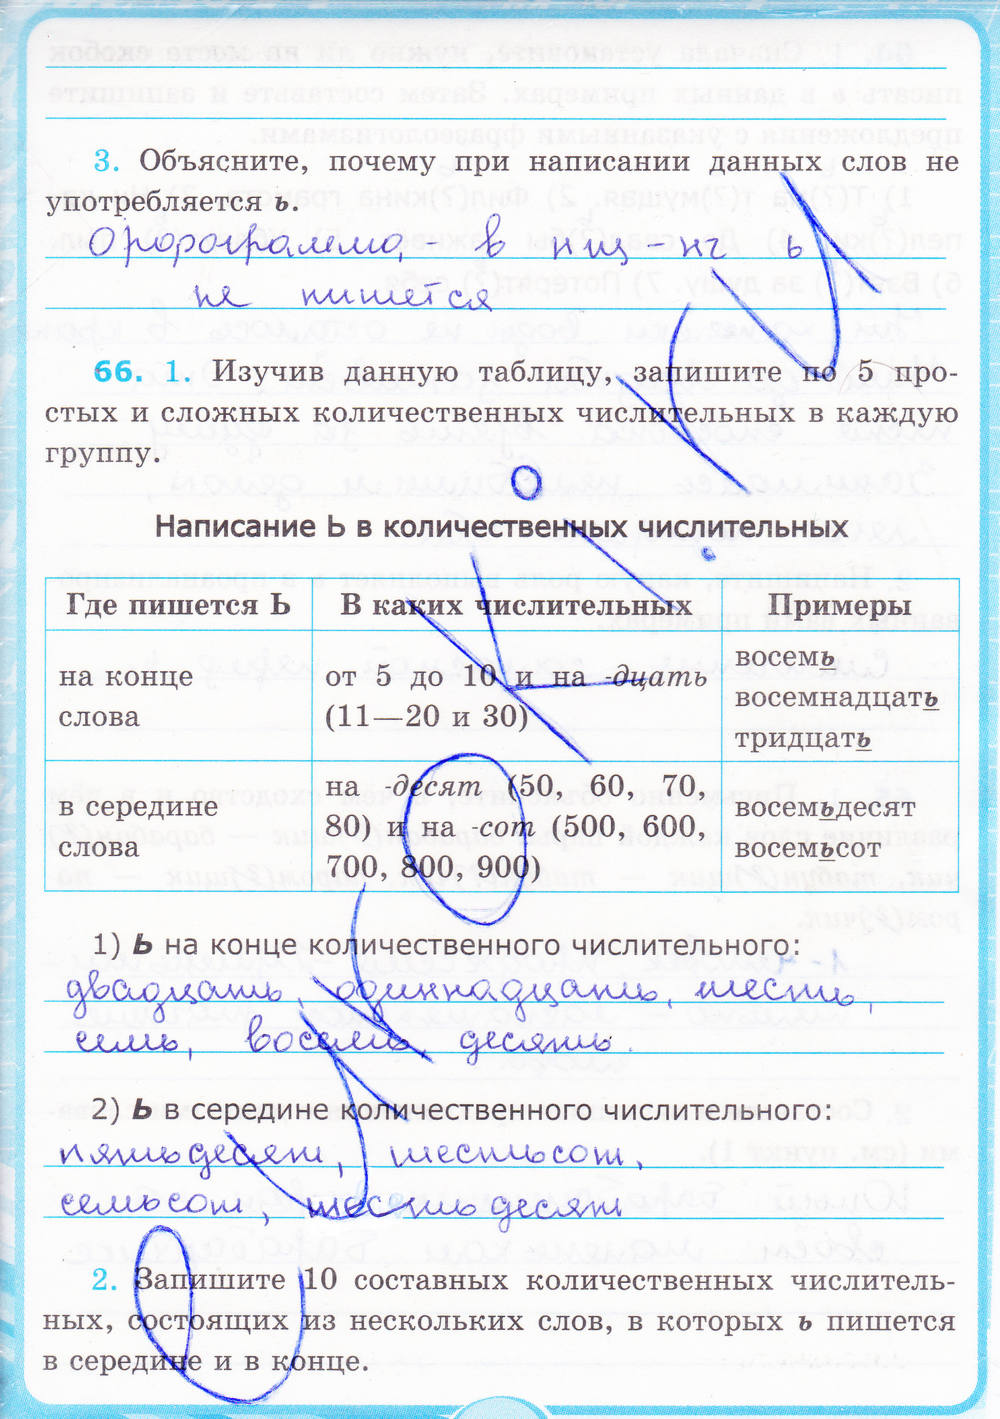 3. Объясните, почему при написании данных слов не
употребляется ь.
Орфограмма - в нщ - нч ь
не пишется
66. 1. Изучив данную таблицу, запишите по 5 про-
стых и сложных количественных числительных в каждую
группу.
Написание Ь в количественных числительных
Где пишется Ь В каких числительных Примеры
на конце
слова
от 5 до 10 и на -дцать
(11—20 и 30)
восемь
восемнадцать
тридцать
в середине
слова
на -десят (50, 60, 70,
80) и на -сот (500, 600,
700, 800, 900)
восемьдесят
восемьсот
1) Ь на конце количественного числительного:
двадцать, одиннадцать, шесть,
семь, восемь, десять.
2) Ь в середине количественного числительного:
пятьдесят, шестьсот,
семьсот, шестьдесят
2. Запишите 10 составных количественных числитель-
ных, состоящих из нескольких слов, в которых ь пишется
в середине и в конце.